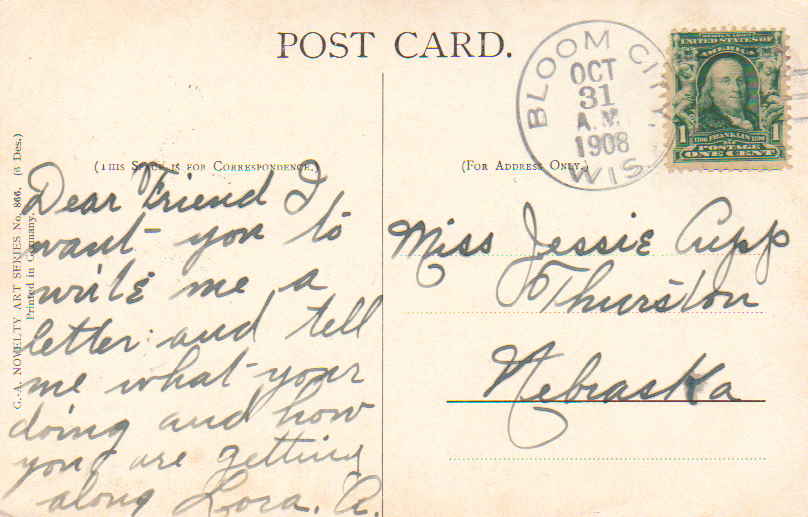 POST CARD.
BLOOM CITY, WIS.
OCT
31
A.M.
1908
UNITED STATES OF
AMERICA
1 FRANKLIN 1
POSTAGE
ONE CENT
(THIS SPACE IS FOR CORRESPONDENCE.)
(FOR ADDRESS ONLY.)
G.-A. NOVELTY ART SERIES No. 866. (6 Des.)
Printed in Germany.
Dear Friend I
want you to
write me a
letter and tell
me what your
doing and how
you are getting
along Lora. A.
Miss Jessie Cupp
Thurston
Nebraska